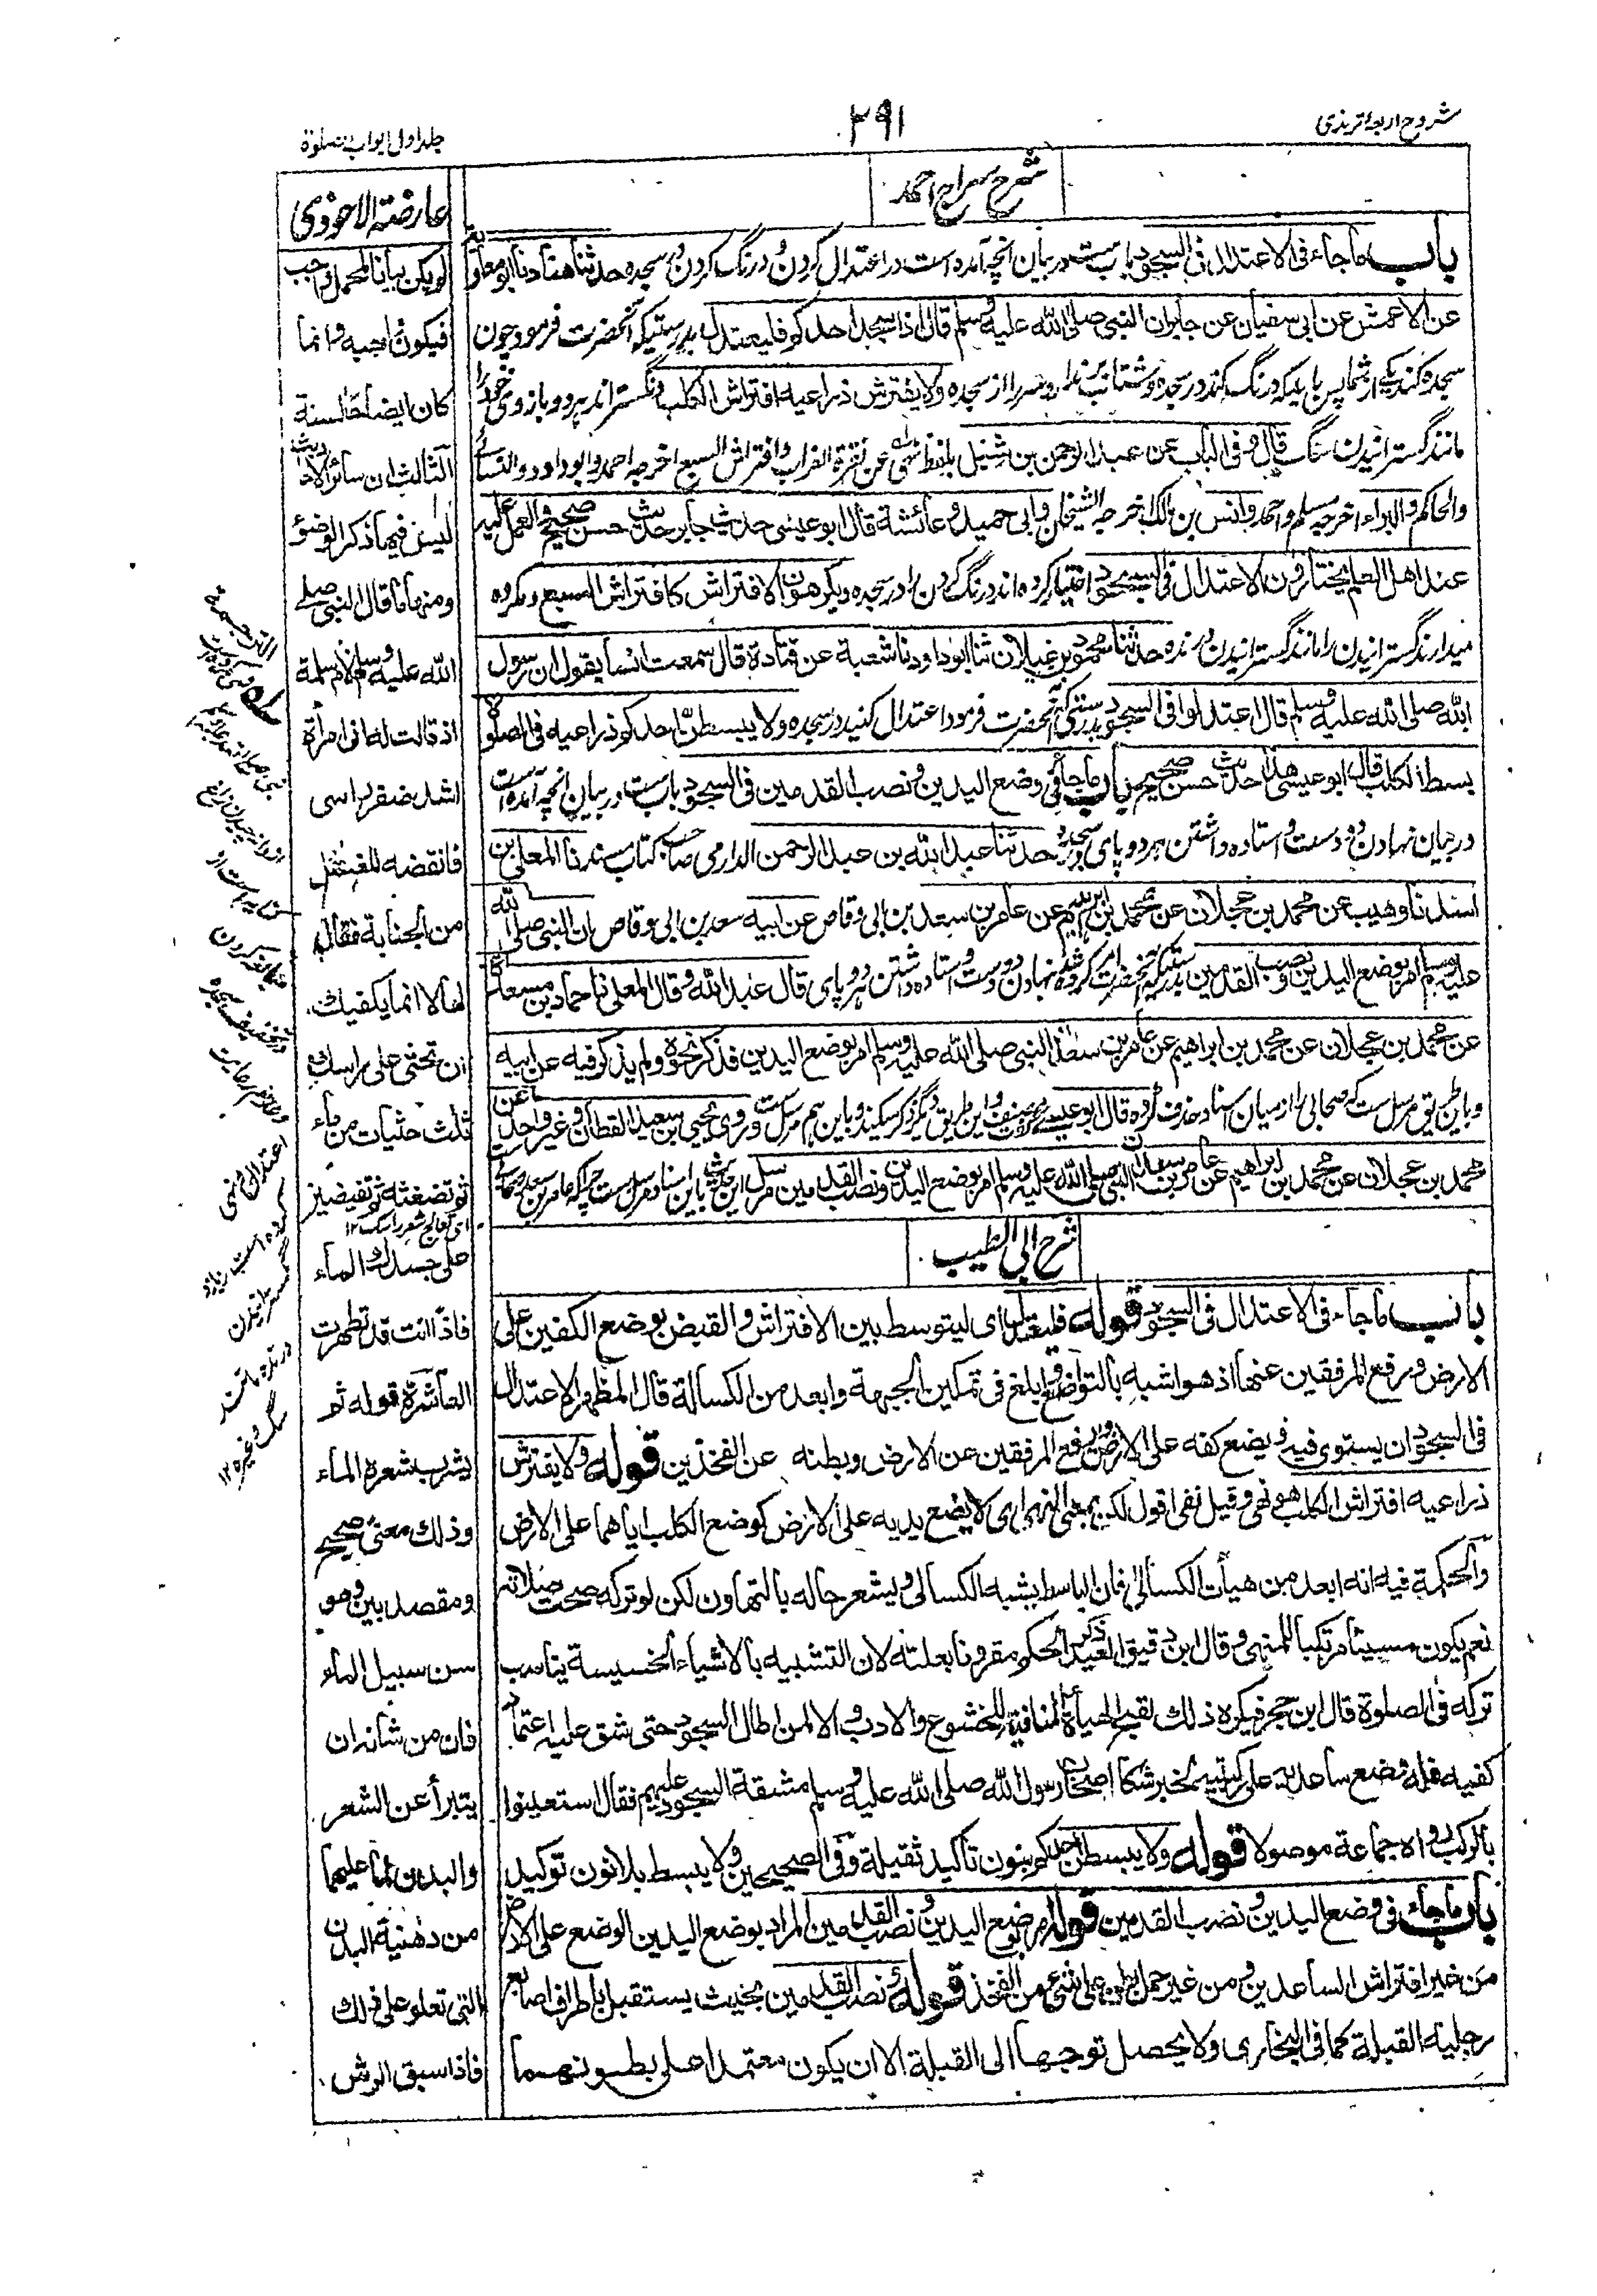 شروح اربعۂ ترمذی
۲۹۱
جلد اول ابواب الصلوة
شرح سراج احمد
باب ما جاء فی الاعتدال فی السجود باب ست در بیان انچه آمده است در اعتدال کردن و درنگ کردن در سجده حدثنا هناد نا ابو معاویة
عن الاعمش عن ابی سفیان عن جابر ان النبی صلی الله علیه وسلم قال اذا سجد احدکم فلیعتدل بدرستیکه آنحضرت فرمود چون
سجده کند یکے از شما پس باید که درنگ کند در سجده و شتاب بر ندارد سر را از سجده ولا یفترش ذراعیه افتراش الکلب و نگستراند هر دو بازوی خود را
مانند گسترانیدن سگ قال وفی الباب عن عبد الرحمن بن شبل بلفظ نهی عن نقرة الغراب وافتراش السبع اخرجه احمد وابو داود والنسائی
والحاکم والبراء اخرجه مسلم واحمد وانس بن مالک اخرجه الشیخان وابی حمید وعائشة قال ابو عیسی حدیث جابر حدیث حسن صحیح والعمل علیه
عند اهل العلم یختارون الاعتدال فی السجود اختیار کرده اند درنگ کردن را در سجده ویکرهون الافتراش کافتراش السبع ومکروه
میدارند گسترانیدن را مانند گسترانیدن درنده حدثنا محمود بن غیلان ثنا ابو داود نا شعبة عن قتادة قال سمعت انسا یقول ان رسول
الله صلی الله علیه وسلم قال اعتدلوا فی السجود بدرستیکه آنحضرت فرمود اعتدال کنید در سجده ولا یبسطن احدکم ذراعیه فی الصلوة
بسط الکلب قال ابو عیسی هذا حدیث حسن صحیح باب ما جاء فی وضع الیدین ونصب القدمین فی السجود باب ست در بیان انچه آمده است
در بیان نهادن دو دست و استاده داشتن هر دو پای در سجده حدثنا عبد الله بن عبد الرحمن الدارمی صاحب کتاب مسند نا المعلی بن
اسد نا وهیب عن محمد بن عجلان عن محمد بن ابراهیم عن عامر بن سعد بن ابی وقاص عن ابیه سعد بن ابی وقاص ان النبی صلی الله
علیه وسلم امر بوضع الیدین ونصب القدمین بدرستیکه آنحضرت امر کرده شد نهادن دو دست و استاده داشتن هر دو پای قال عبد الله وقال المعلی نا حماد بن مسعدة
عن محمد بن عجلان عن محمد بن ابراهیم عن عامر بن سعد ان النبی صلی الله علیه وسلم امر بوضع الیدین فذکر نحوه ولم یذکر فیه عن ابیه
و باین طریق مرسل ست که صحابی را از میان اسناد حذف کرده قال ابو عیسی وروی یحیی بن سعید القطان وغیر واحد عن
محمد بن عجلان عن محمد بن ابراهیم عن عامر بن سعد ان النبی صلی الله علیه وسلم امر بوضع الیدین ونصب القدمین مرسل این حدیث باین اسناد مرسل ست
شرح ابی الطیب
باب ما جاء فی الاعتدال فی السجود قوله فلیعتدل ای لیتوسط بین الافتراش والقبض بوضع الکفین علی
الارض ورفع المرفقین عنها اذ هو اشبه بالتواضع وابلغ فی تمکین الجبهة وابعد من الکسالة قال المظهر الاعتدال
فی السجود ان یستوی فیه ویضع کفه علی الارض ویرفع المرفقین عن الارض وبطنه عن الفخذین قوله ولا یفترش
ذراعیه افتراش الکلب هو نهی وقیل نفی اقول لکن بمعنی النهی ای لا یضع یدیه علی الارض کوضع الکلب ایاهما علی الارض
والحکمة فیه انه ابعد من هیأت الکسالی فان الباسط یشبه الکسالی ویشعر حاله بالتهاون لکن لو ترکه صحت صلاته
نعم یکون مسیئا مرتکبا للمنهی وقال ابن دقیق العید ذکر الحکم مقرونا بعلته لان التشبیه بالاشیاء الخسیسة یناسب
ترکه فی الصلوة قال ابن حجر فیکره ذلک لقبح الهیأة المنافیة للخشوع والادب الا لمن اطال السجود حتی شق علیه اعتماد
کفیه فله وضع ساعدیه علی رکبتیه لخبر شکا اصحاب رسول الله صلی الله علیه وسلم مشقة السجود علیهم فقال استعینوا
بالرکب رواه جماعة موصولا قوله ولا یبسطن احدکم بنون تاکید ثقیلة وفی الصحیحین ولا یبسط بلا نون توکید
باب ما جاء فی وضع الیدین ونصب القدمین قوله امر بوضع الیدین ونصب القدمین المراد بوضع الیدین الوضع علی الارض
من غیر افتراش الساعدین ومن غیر حمل بطن علی شیء من الفخذ قوله ونصب القدمین بحیث یستقبل باطراف اصابع
رجلیه القبلة کما فی البخاری ولا یحصل توجهها الی القبلة الا ان یکون معتمدا علی بطونهما
عارضة الاحوذی
لو یکن بیانا لمجمل واجب
فیکون واجبه وانما
کان ایضاحا لسنة
الثالث ان سائر الاحادیث
لیس فیها ذکر الوضوء
ومنها ما قال النبی صلی
الله علیه وسلم لام سلمة
اذ قالت له انی امرأة
اشد ضفر راسی
فانقضه للغسل
من الجنابة فقال
لها لا انما یکفیک
ان تحثی علی راسک
ثلث حثیات من ماء
ثم تضغثه ثم تفیضین
علی جسدک الماء
فاذا انت قد تطهرت
العاشرة قوله ثم
یشرب شعره الماء
وذلک معنی صحیح
ومقصد بین وهو
سن سبیل الماء
فان من شانه ان
یتبرأ عن الشعر
والبدن لما علیهما
من دهنیة البدن
التی تعلو علی ذلک
فاذا سبق الرش
الترجمة
اعتدال نهی
کرده است
گسترانیدن
درنده مانند
سگ وغیره ۱۲